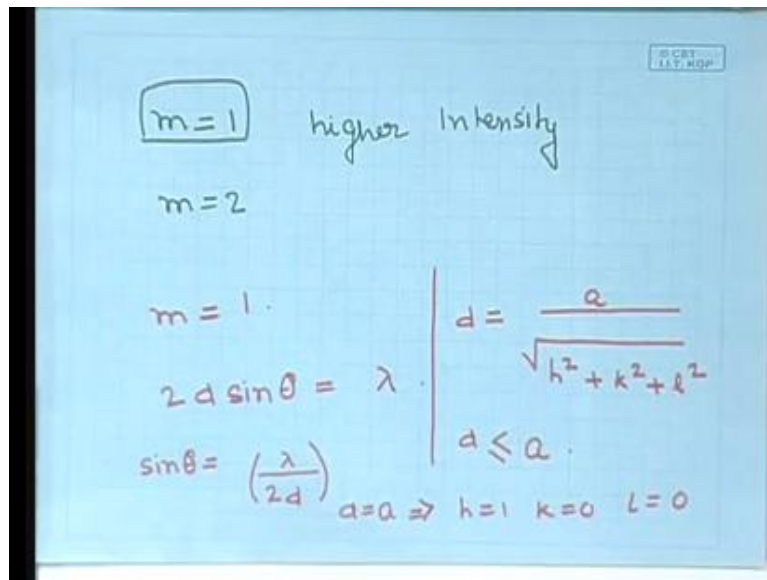 © CET
I.I.T. KGP
m = 1 higher Intensity
m = 2
m = 1.
2 d sin θ = λ.
sin θ = (λ/2d)
d = a/√h² + k² + l²
d ⩽ a.
d = a ⇒ h = 1 k = 0 l = 0